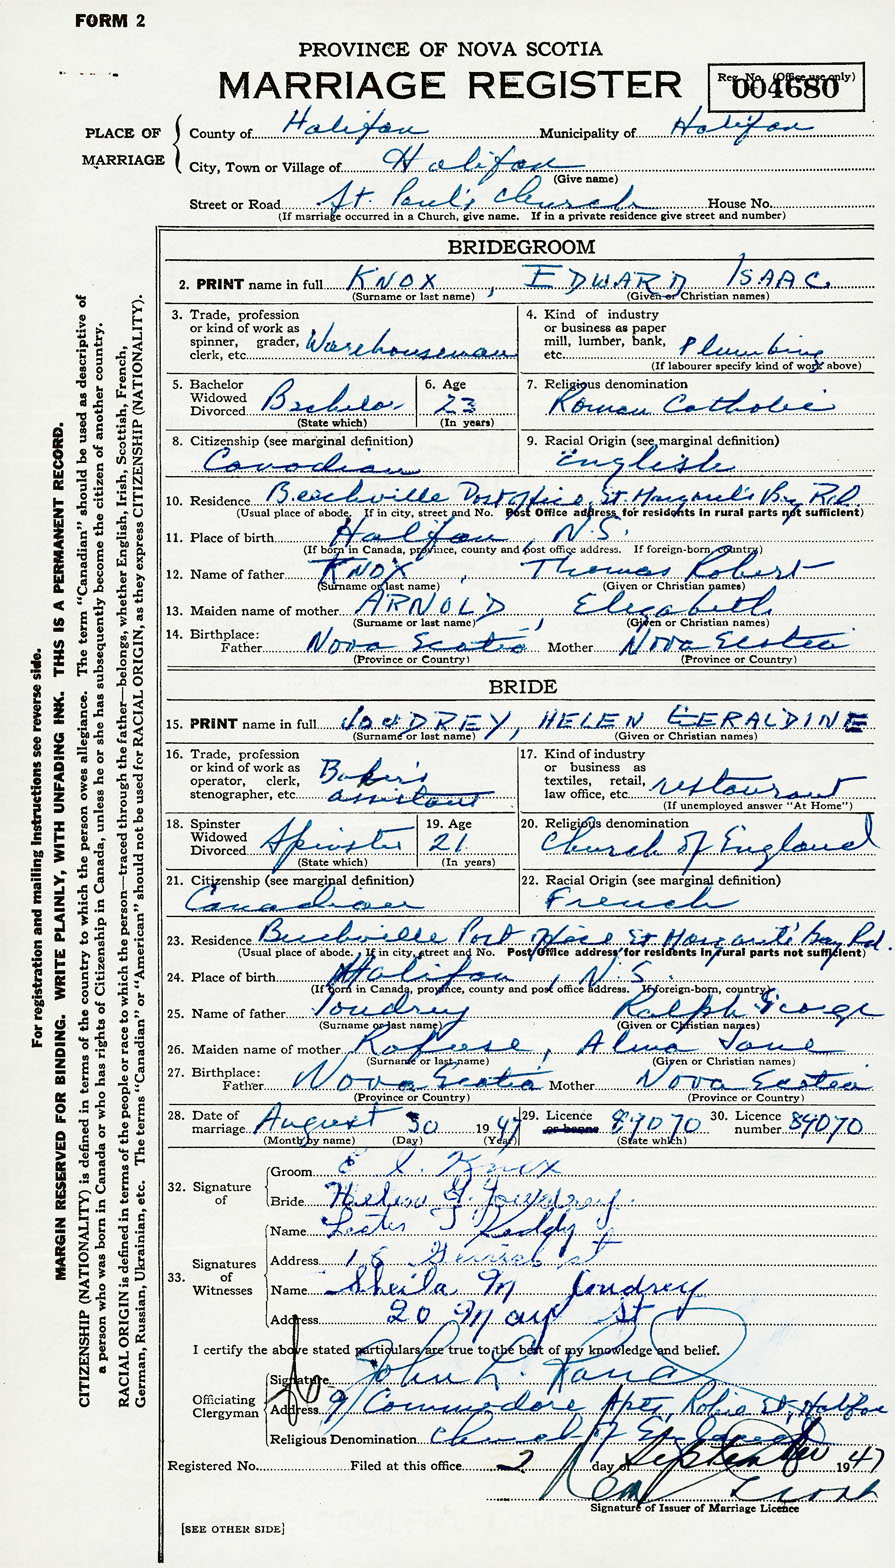 FORM 2
PROVINCE OF NOVA SCOTIA
MARRIAGE REGISTER
Reg. No. (Office use only)
004680
PLACE OF MARRIAGE
County of Halifax Municipality of Halifax
City, Town or Village of Halifax
(Give name)
Street or Road St. Paul's Church House No.
(If marriage occurred in a Church, give name. If in a private residence give street and number)
BRIDEGROOM
2. PRINT name in full KNOX, EDWARD ISAAC
(Surname or last name) (Given or Christian names)
3. Trade, profession or kind of work as spinner, grader, clerk, etc. Warehouseman
4. Kind of industry or business as paper mill, lumber, bank, etc. Plumbing
(If labourer specify kind of work above)
5. Bachelor Widowed Divorced Bachelor
(State which)
6. Age 23
(In years)
7. Religious denomination Roman Catholic
8. Citizenship (see marginal definition) Canadian
9. Racial Origin (see marginal definition) English
10. Residence Beechville Post Office, St. Margaret's Bay Rd.
(Usual place of abode. If in city, street and No. Post Office address for residents in rural parts not sufficient)
11. Place of birth Halifax, N.S.
(If born in Canada, province, county and post office address. If foreign-born, country)
12. Name of father KNOX, Thomas Robert
(Surname or last name) (Given or Christian names)
13. Maiden name of mother ARNOLD, Elizabeth
(Surname or last name) (Given or Christian names)
14. Birthplace:
Father Nova Scotia Mother Nova Scotia
(Province or Country) (Province or Country)
BRIDE
15. PRINT name in full JOUDREY, HELEN GERALDINE
(Surname or last name) (Given or Christian names)
16. Trade, profession or kind of work as operator, clerk, stenographer, etc. Baker's assistant
17. Kind of industry or business as textiles, retail, law office, etc. restaurant
(If unemployed answer "At Home")
18. Spinster Widowed Divorced Spinster
(State which)
19. Age 21
(In years)
20. Religious denomination Church of England
21. Citizenship (see marginal definition) Canadian
22. Racial Origin (see marginal definition) French
23. Residence Beechville Post Office St Margaret's Bay Rd.
(Usual place of abode. If in city, street and No. Post Office address for residents in rural parts not sufficient)
24. Place of birth Halifax, N.S.
(If born in Canada, province, county and post office address. If foreign-born, country)
25. Name of father Joudrey Ralph George
(Surname or last name) (Given or Christian names)
26. Maiden name of mother Rafuse, Alma Jane
(Surname or last name) (Given or Christian names)
27. Birthplace:
Father Nova Scotia Mother Nova Scotia
(Province or Country) (Province or Country)
28. Date of marriage August 30 1947
(Month by name) (Day) (Year)
29. Licence or banns 84070
(State which)
30. Licence number 84070
32. Signature of
Groom E I. Knox
Bride Helen G. Joudrey.
33. Signatures of Witnesses
Name J Reddy
Address 18 st
Name Sheila M Joudrey
Address 20 May st
I certify the above stated particulars are true to the best of my knowledge and belief.
Officiating Clergyman
Signature John L.
Address 9 Commodore Apts, Robie St, Halifax
Religious Denomination Church of England
Registered No. Filed at this office 2 day of September 1947
Signature of Issuer of Marriage Licence
[SEE OTHER SIDE]
For registration and mailing instructions see reverse side.
MARGIN RESERVED FOR BINDING. WRITE PLAINLY, WITH UNFADING INK. THIS IS A PERMANENT RECORD.
CITIZENSHIP (NATIONALITY) is defined in terms of the country to which the person owes allegiance. The term "Canadian" should be used as descriptive of
a person who was born in Canada or who has rights of Citizenship in Canada, unless he or she has subsequently become the citizen of another country.
RACIAL ORIGIN is defined in terms of the people or race to which the person—traced through the father—belongs, whether English, Irish, Scottish, French,
German, Russian, Ukrainian, etc. The terms "Canadian" or "American" should not be used for RACIAL ORIGIN, as they express CITIZENSHIP (NATIONALITY).